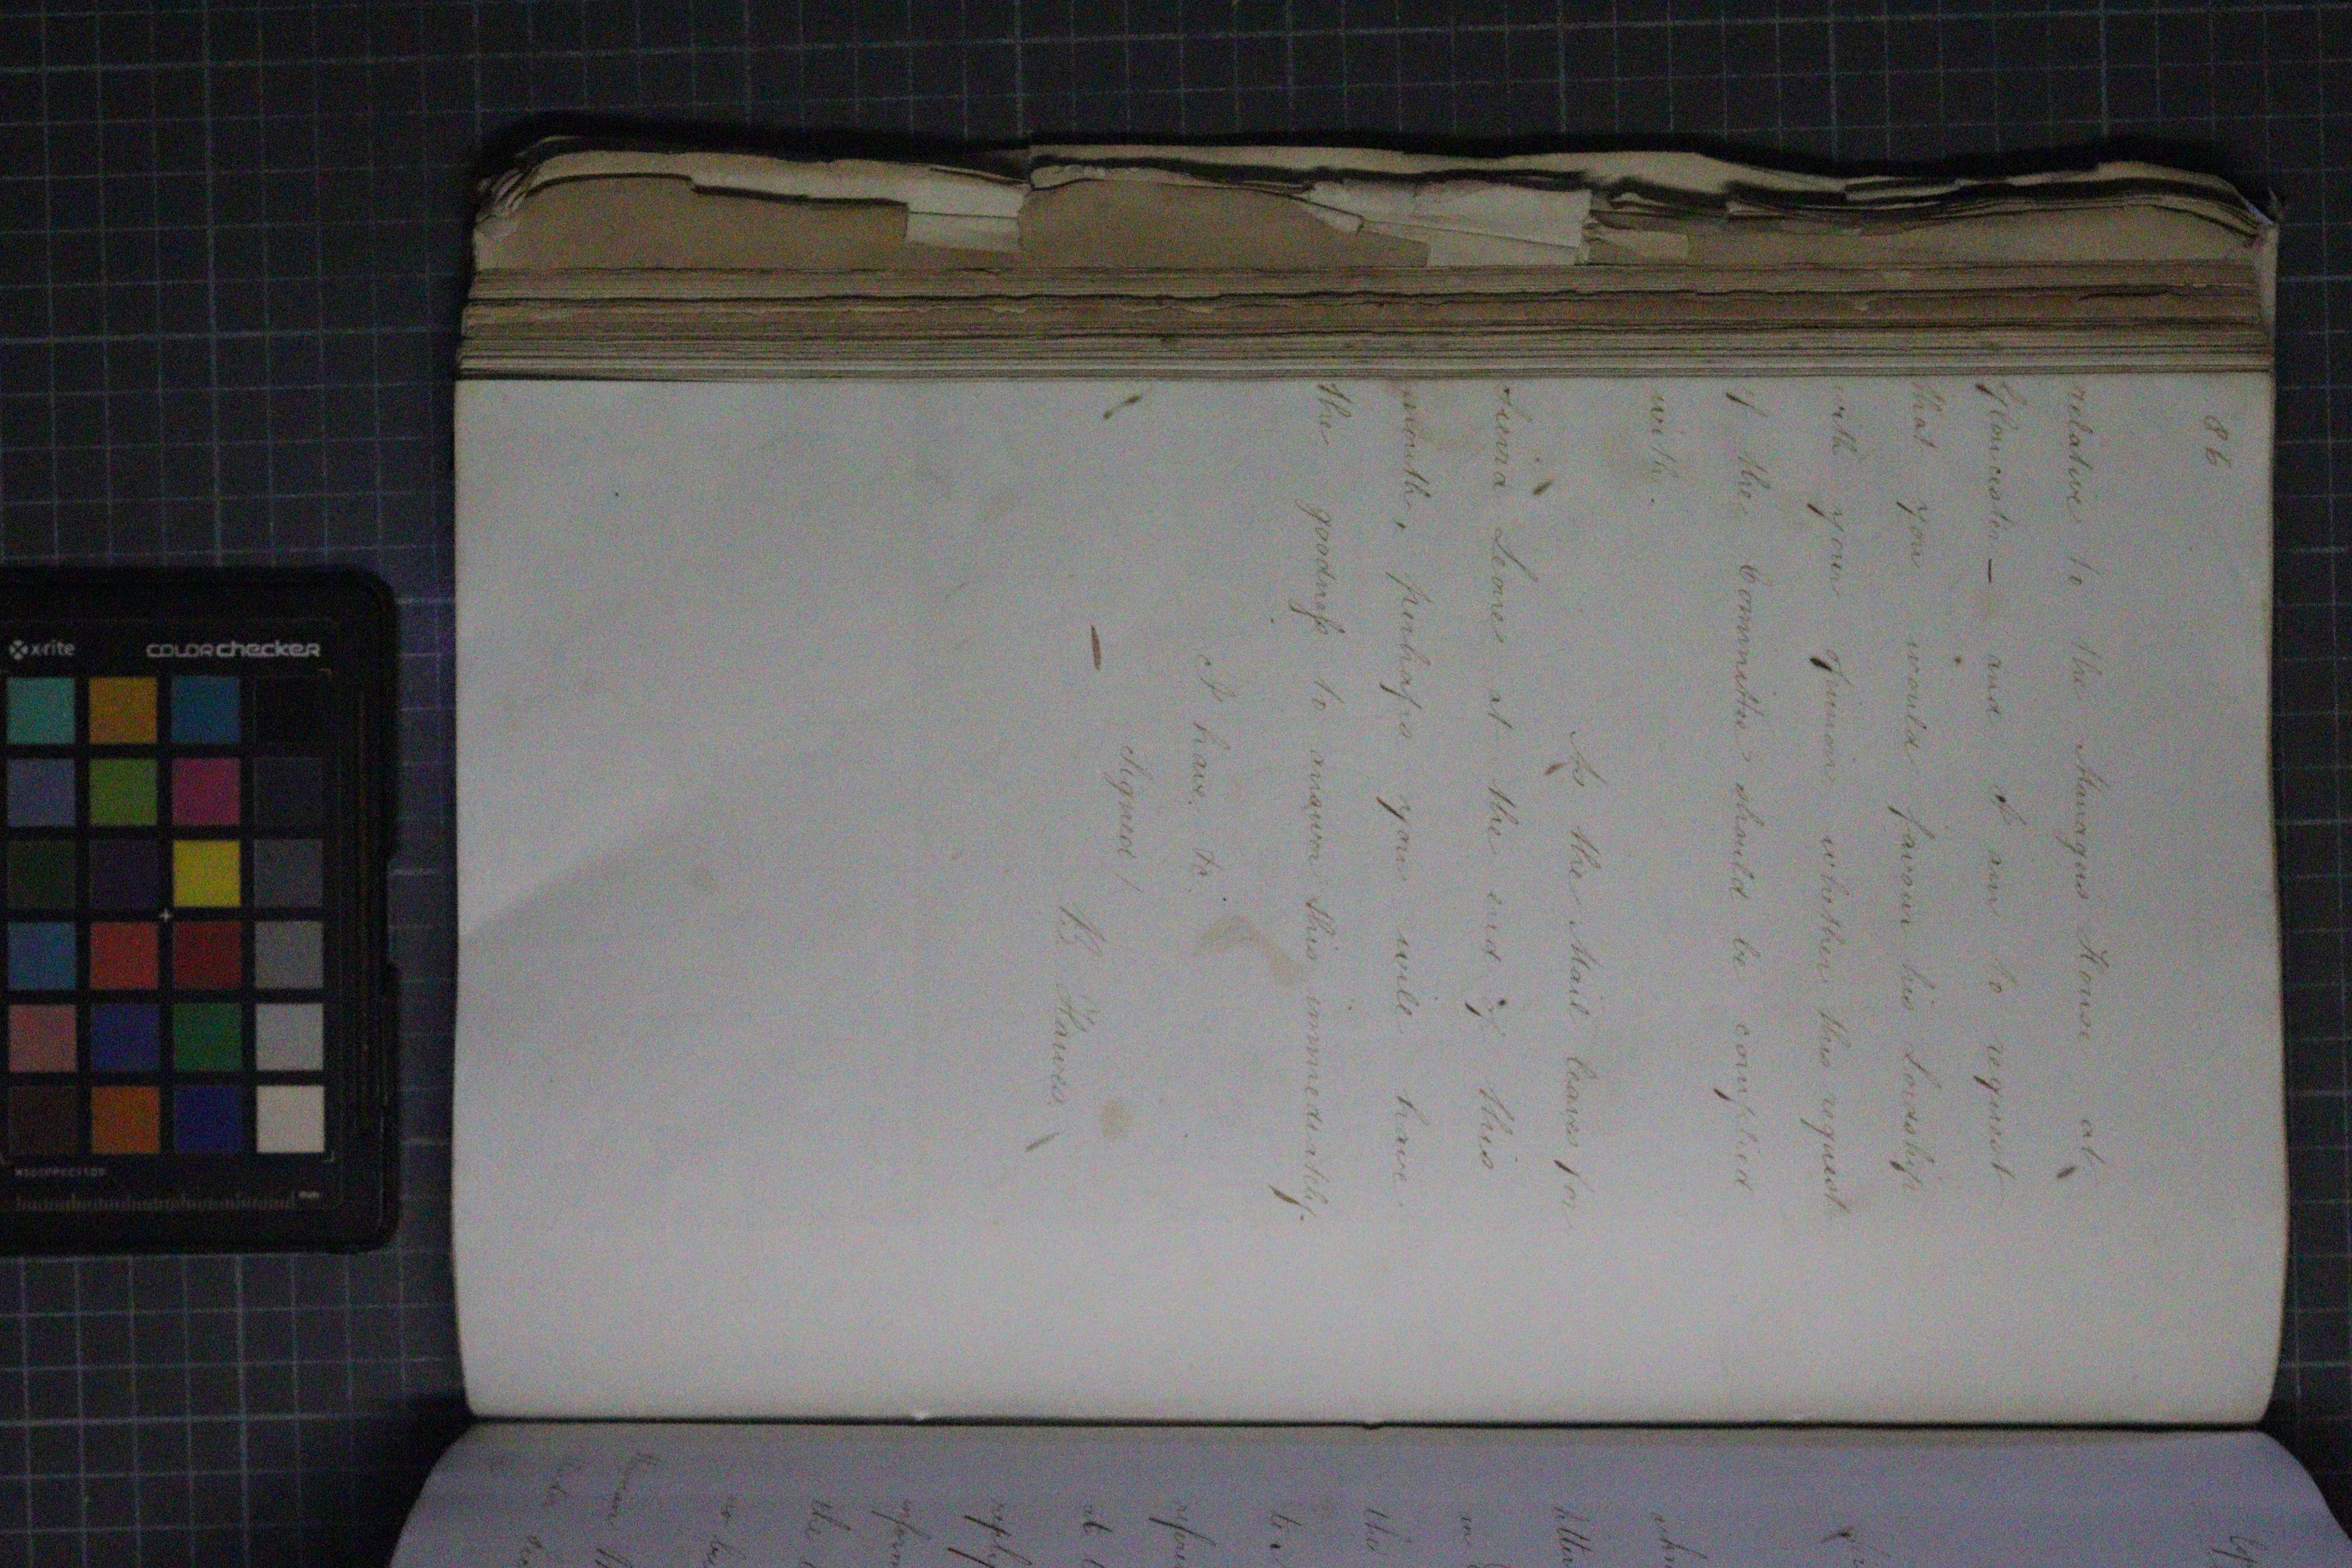 86
relative to the Managers House at
Gloucester — and I am to request
that you would favour his Lordship
with your opinion whether this request
of the Committee should be complied
with.
As the Mail leaves for
Sierra Leone at the end of this
month, perhaps you will have
the goodness to answer this immediately.
I have, &c.
Signed / B. Hawes.
x-rite
colorchecker